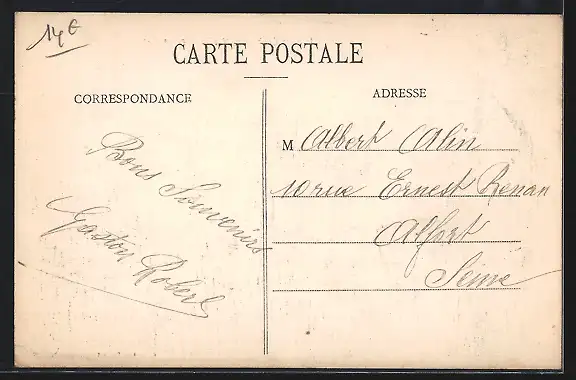 14€
CARTE POSTALE
CORRESPONDANCE
Bons Souvenirs
Gaston Robert
ADRESSE
M Albert Alin
10 rue Ernest Renan
Alfort
Seine